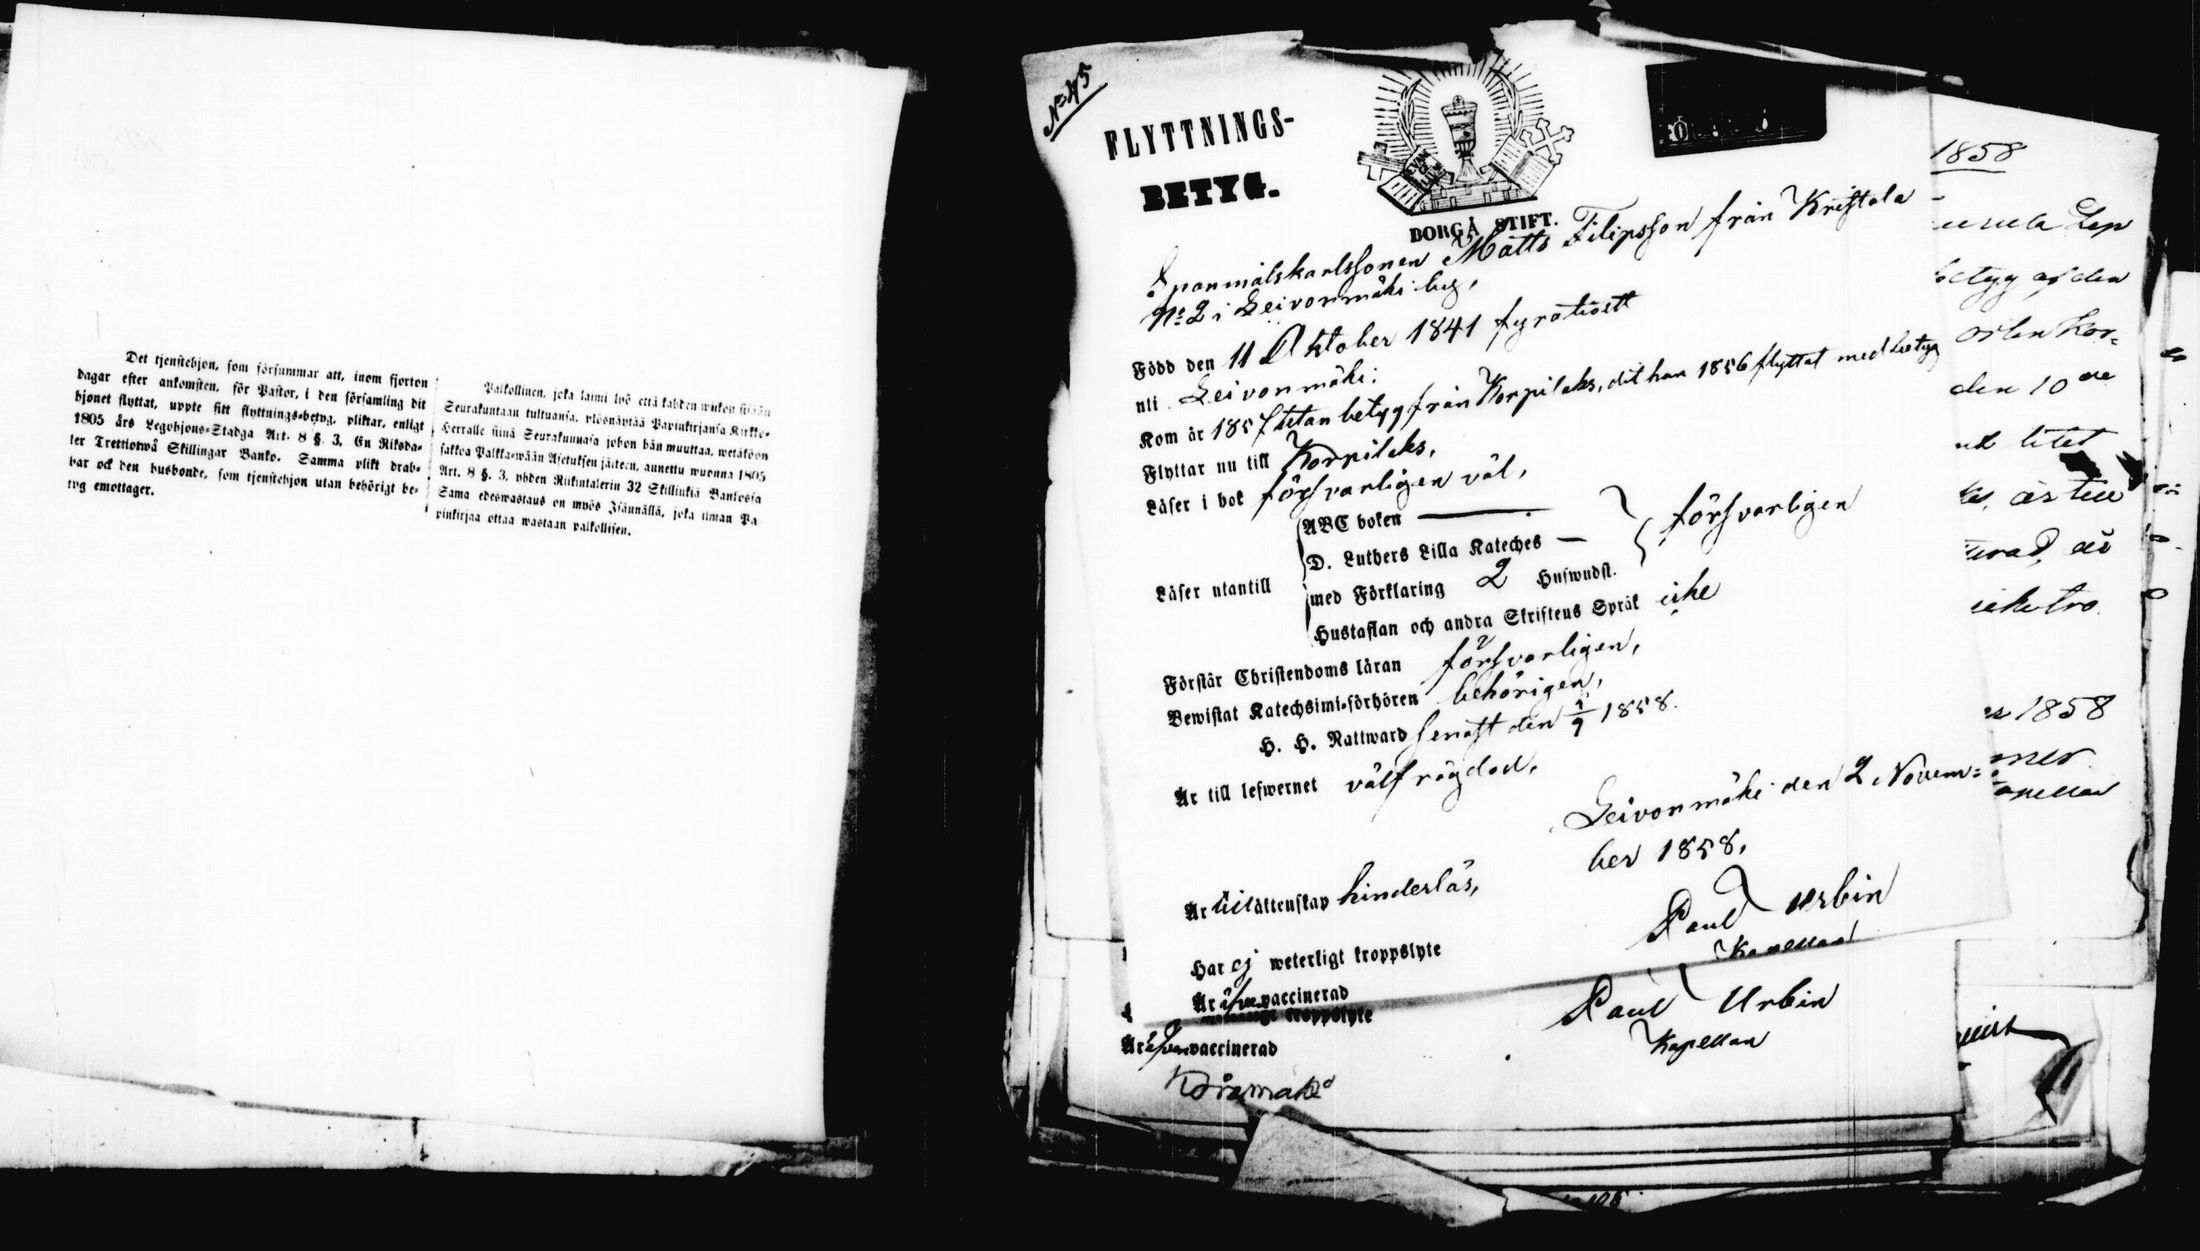 Det tjenstehjon, som försummar att, inom fjorton
dagar efter ankomsten, för Pastor, i den församling dit
hjonet flyttat, uppte sitt flyttnings-betyg, pliktar, enligt
1805 års Legohjons-Stadga Art. 8 §. 3, En Riksda-
ler Trettiotwå Skillingar Banko. Samma plikt drab-
bar ock den husbonde, som tjenstehjon utan behörigt be-
tyg emottager.
Palkollinen, joka laimi lyö että kahden wiikon sisään
Seurakuntaan tultuansa, ylösnäyttää Papinkirjansa Kirkko-
Herralle siinä Seurakunnasa johon hän muuttaa, wetäköön
sakkoa Palkka-wään Asetuksen jälkeen, annettu wuonna 1805
Art. 8 §. 3, yhden Riikintalerin 32 Skillinkiä Bankossa
Sama edeswastaus on myös Isännällä, joka ilman Pa-
pinkirjaa ottaa wastaan palkollisen.
No 45
FLYTTNINGS-
BETYG.
BORGÅ STIFT.
Spanmålskarlssonen Matts Filipsson från Kristola
No 2 i Leivonmäki by,
Född den 11 Oktober 1841 fyrationett
uti Leivonmäki;
Kom år 1857 utan betyg från Korpilaks, dit han 1856 flyttat med betyg
Flyttar nu till Korpilaks,
Läser i bok försvarligen väl,
Läser utantill
ABC boken
D. Luthers Lilla Kateches
med Förklaring 2 Hufwudst.
försvarligen
Hustaflan och andra Skriftens Språk icke
Förstår Christendoms läran försvarligen,
Bewistat Katechsimi-förhören behörigen,
H. H. Nattward senast den 1/9 1858.
Är till lefwernet välfrägdad,
Leivonmäki den 2 Novem-
ber 1858,
Är till äktenskap hinderlös,
Paul Urbin
Kapellan
Har ej weterligt kroppslyte
Är äfven vaccinerad
kroppslyte
Paul Urbin
Kapellan
Är äfven vaccinerad
1858
betyg af den
den 10 de
1858